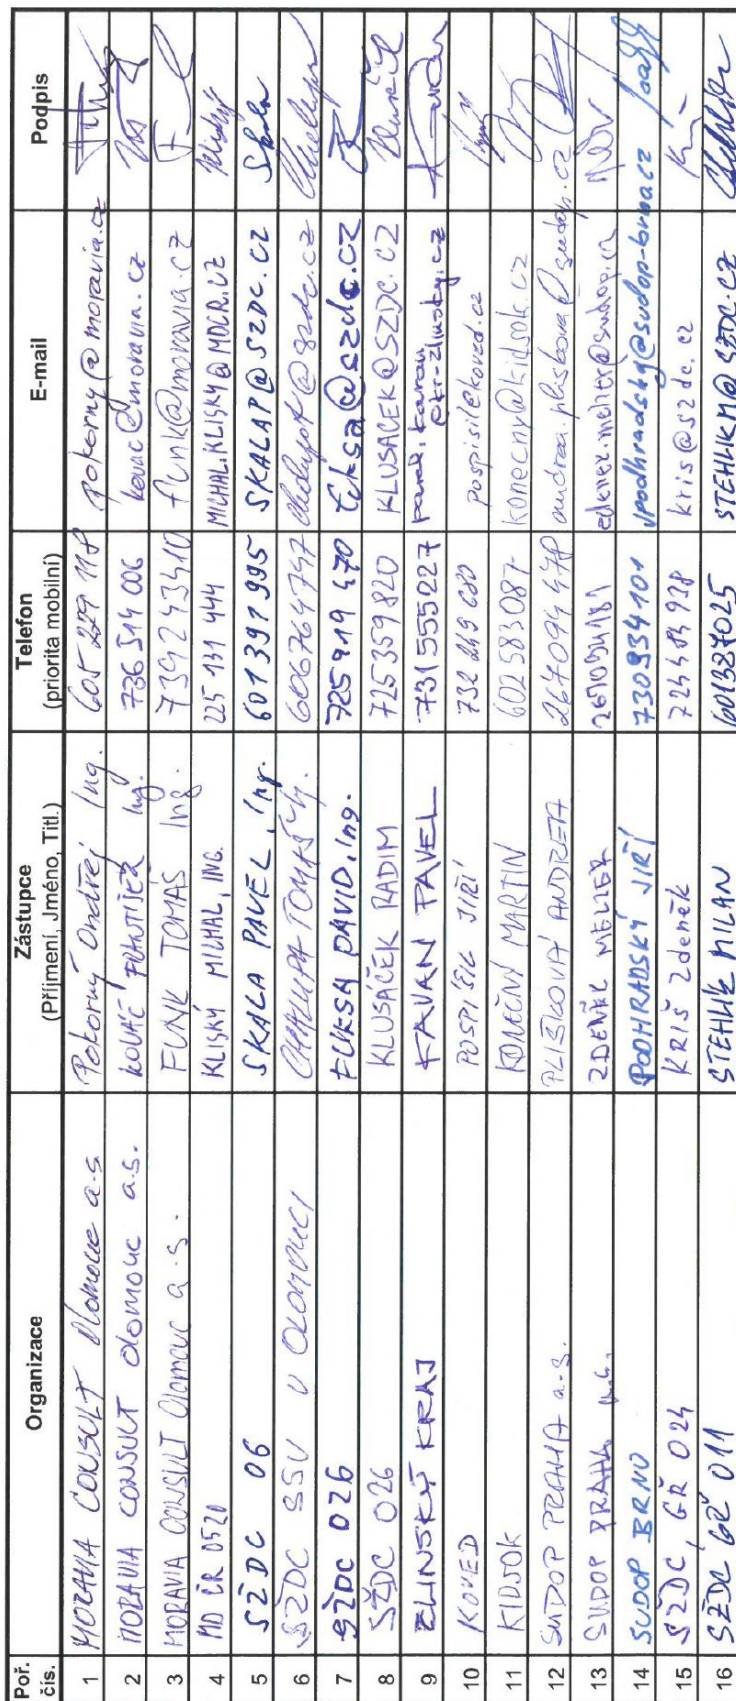 Poř. čís. Organizace Zástupce (Příjmení, Jméno, Titl.) Telefon (priorita mobilní) E-mail Podpis
1 MORAVIA CONSULT Olomouc a.s. Pokorný Ondřej Ing. 605 229 118 pokorny@moravia.cz
2 MORAVIA CONSULT Olomouc a.s. KOVÁČ Ing. 736 514 006 kovac@moravia.cz
3 MORAVIA CONSULT Olomouc a.s. FUNK TOMÁŠ Ing. 739 243 410 funk@moravia.cz
4 MD ČR 0520 KLISKÝ MICHAL, ING. 225 131 444 MICHAL.KLISKY@MDCR.CZ
5 SŽDC 06 SKALA PAVEL, Ing. 601 397 995 SKALAP@SZDC.CZ Skala
6 SŽDC SSV V OLOMOUCI CHALUPA TOMÁŠ 606764747
7 SŽDC 026 FUKSA DAVID, Ing. 725 919 470 fuksa@szdc.cz
8 SŽDC 026 KLUSÁČEK RADIM 725359820 KLUSACEK@SZDC.CZ
9 ZLINSKÝ KRAJ KAVAN PAVEL 731 555 227 pavel.kavan@kr-zlinsky.cz
10 KOVED POSPÍŠIL JIŘÍ 732 249 680 pospisil@koved.cz
11 KIDSOK KONEČNÝ MARTIN 602583087 konecny@kidsok.cz
12 SUDOP PRAHA a.s. PLIŠKOVÁ ANDREA 267094478 andrea.pliskova@sudop.cz
13 SUDOP PRAHA a.s. ZDENĚK MELZER 267094181 zdenek.melzer@sudop.cz
14 SUDOP BRNO PODHRADSKÝ JIŘÍ 730934101 jpodhradsky@sudop-brno.cz
15 SŽDC, GŘ 024 KRIŠ Zdeněk kris@szdc.cz
16 SŽDC GŘ 011 STEHLIK MILAN 601387025 STEHLIKM@SZDC.CZ